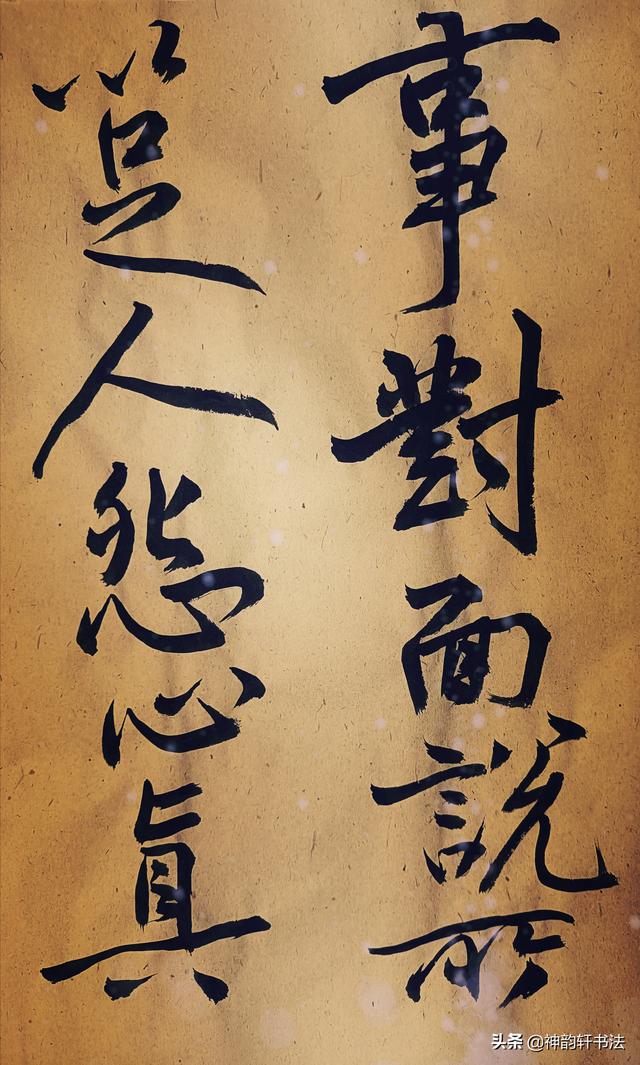 事對面說所
人怨心真
头条 @神韵轩书法